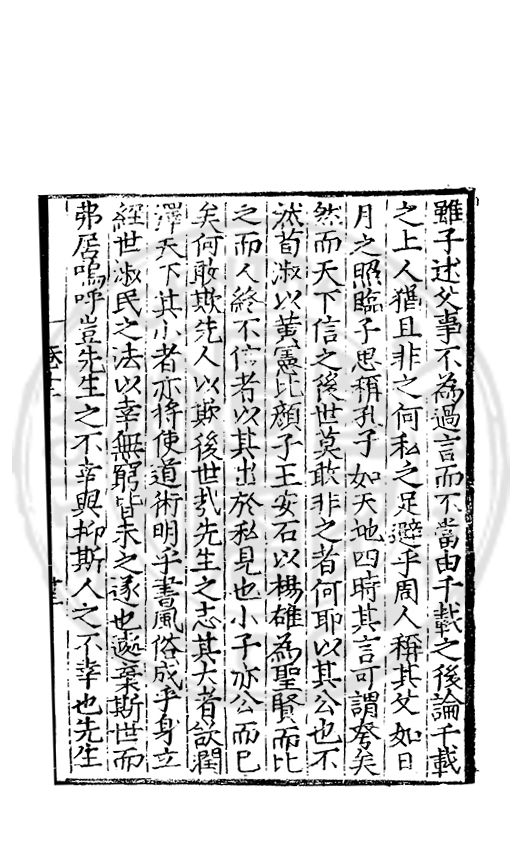 雖子述父事不為過言而不當由千載之後論千載
之上人猶且非之何私之足避乎周人稱其父如日
月之照臨子思稱孔子如天地四時其言可謂夸矣
然而天下信之後世莫敢非之者何耶以其公也不
然荀淑以黃憲比顏子王安石以楊雄為聖賢而比
之而人終不信者以其出於私見也小子亦公而已
矣何敢欺先人以欺後世哉先生之志其大者欲潤
澤天下其小者亦將使道術明乎書風俗成乎身立
經世淑民之法以幸無窮皆未之遂也遽棄斯世而
弗居嗚呼豈先生之不幸與抑斯人之不幸也先生